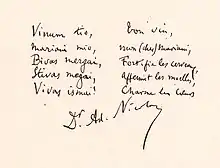 Vinum tio,
mariani mio,
Bivas mergai,
Stivas megai,
Vivas ismai!
Bon vin,
mon (cher) Mariani,
Fortifie les cerveaux,
affermit les moelles,
Charme les
Dr. Ad.